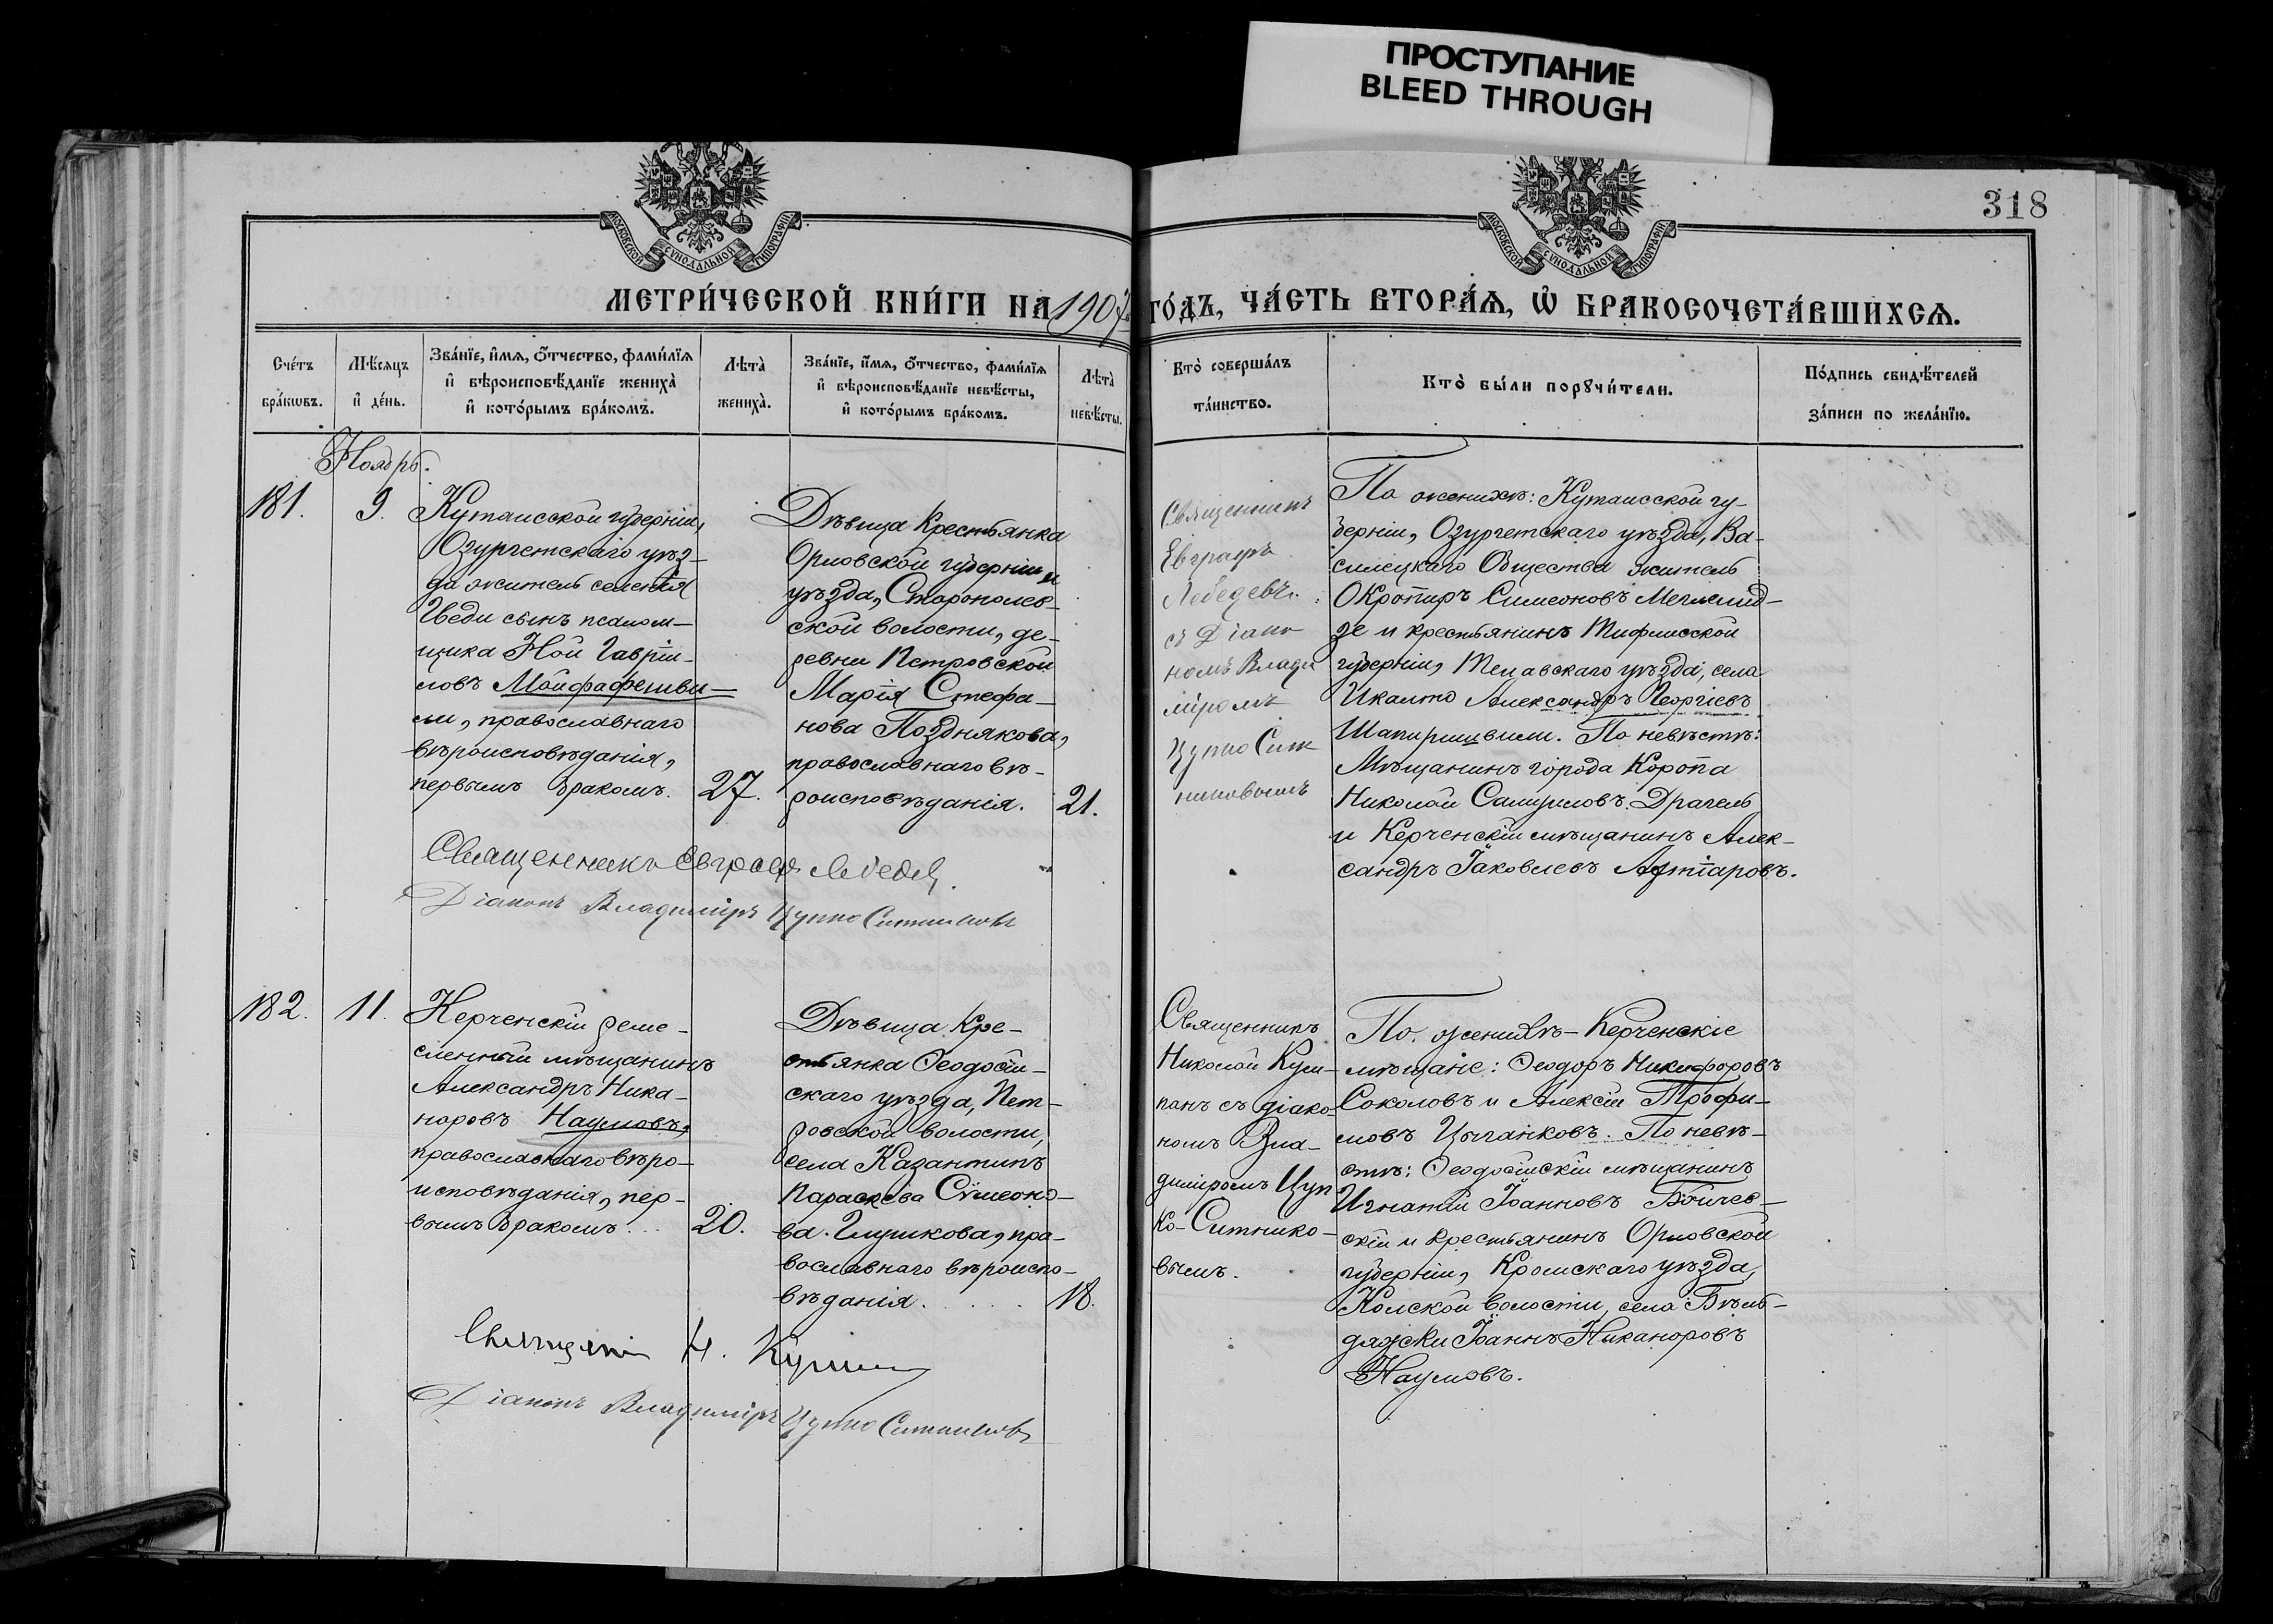 ПРОСТУПАНИЕ
BLEED THROUGH
318
МОСКОВСКОЙ СѴНОДАЛЬНОЙ ТИПОГРАФІИ
МОСКОВСКОЙ СѴНОДАЛЬНОЙ ТИПОГРАФІИ
МЕТРИ́ЧЕСКОЙ КНИ́ГИ НА 1907 ГО́ДЪ, ЧА́СТЬ ВТОРА́Ѧ, Ѡ БРАКОСОЧЕТА́ВШИХСѦ.
Сче́тъ
бра́кѡвъ.
Мѣ́сѧцъ
и҆ де́нь.
Зва́нїе, и҆́мѧ, ѻ҆́тчество, фами́лїѧ
и҆ вѣроисповѣ́данїе жениха̀
и҆ кото́рымъ бра́комъ.
Лѣта̀
жениха̀.
Зва́нїе, и҆́мѧ, ѻ҆́тчество, фами́лїѧ
и҆ вѣроисповѣ́данїе невѣ́сты,
и҆ кото́рымъ бра́комъ.
Лѣта̀
невѣ́сты.
Кто̀ соверша́лъ
та́инство.
Кто̀ бы́ли порꙋчи́тели.
По́дпись свидѣ́телей
за́писи по жела́нїю.
Ноябрь.
181.
9.
Кутаисской губерніи,
Озургетскаго уѣз-
да житель селенія
Гведи сынъ псалом-
щика Ной Гавріи-
ловъ Мойфафешви-
ли, православнаго
вѣроисповѣданія,
первымъ бракомъ.
27.
Дѣвица крестьянка
Орловской губерніи и
уѣзда,
ской волости, де-
ревни Петровской
Марія Стефа-
нова Позднякова,
православнаго вѣ-
роисповѣданія.
21.
Священникъ
Евграфъ
Лебедевъ
съ Діако
номъ Влади
міромъ
Цупко Сит
никовымъ
По женихѣ: Кутаисской гу-
берніи, Озургетскаго уѣзда, Ва-
силецкаго Общества житель
Симеоновъ
зе и крестьянинъ Тифлисской
губерніи, Телавскаго уѣзда, села
Икалто Александръ Георгіевъ
Шапиришвили. По невѣстѣ:
Мѣщанинъ города Коропа
Николай Самуиловъ Драгель
и Керченскій мѣщанинъ Алек-
сандръ Іаковлевъ
Священникъ Евграфъ Лебедев
Діаконъ Владиміръ Цупко Ситниковъ
182.
11.
Керченскій реме-
сленный мѣщанинъ
Александръ Ника-
норовъ Наумовъ,
православнаго вѣро-
исповѣданія, пер-
вымъ бракомъ
20.
Дѣвица кре-
стьянка Ѳеодосій-
скаго уѣзда, Пет-
ровской волости,
села Казантипъ
Параскева Сѵмеоно-
ва Глушкова, пра-
вославнаго вѣроиспо-
вѣданія.
18.
Священникъ
Николай Куш-
панъ съ діако-
номъ Вла-
диміромъ Цуп
ко-Ситнико-
вымъ.
По женихѣ - Керченскіе
мѣщане: Ѳеодоръ Никифоровъ
Соколовъ и Алексій Трофи-
мовъ Цыганковъ. По невѣ-
стѣ: Ѳеодосійскій мѣщанинъ
Игнатій Іоанновъ Бойчев-
скій и крестьянинъ Орловской
губерніи, Кромскаго уѣзда,
волости, села Бѣль-
дяжски Іоаннъ Никаноровъ
Наумовъ.
Священник Н. Кушпан
Діаконъ Владиміръ Цупко Ситниковъ